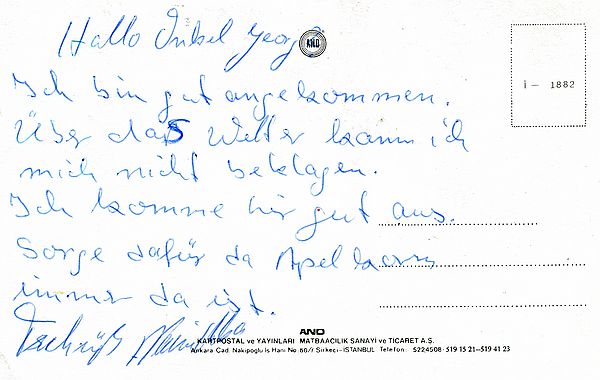 Hallo Onkel Georg
AND
i - 1882
Ich bin gut angekommen.
Über daß Wetter kann ich
mich nicht beklagen.
Ich komme hir gut aus.
Sorge dafür da Apelkorn
immer da ist.
AND
KARTPOSTAL ve YAYINLARI MATBAACILIK SANAYİ ve TİCARET A.Ş.
Ankara Cad. Nakipoğlu İş Hanı No 60/7 Sirkeci-İSTANBUL Telefon: 5224508-519 15 21-519 41 23